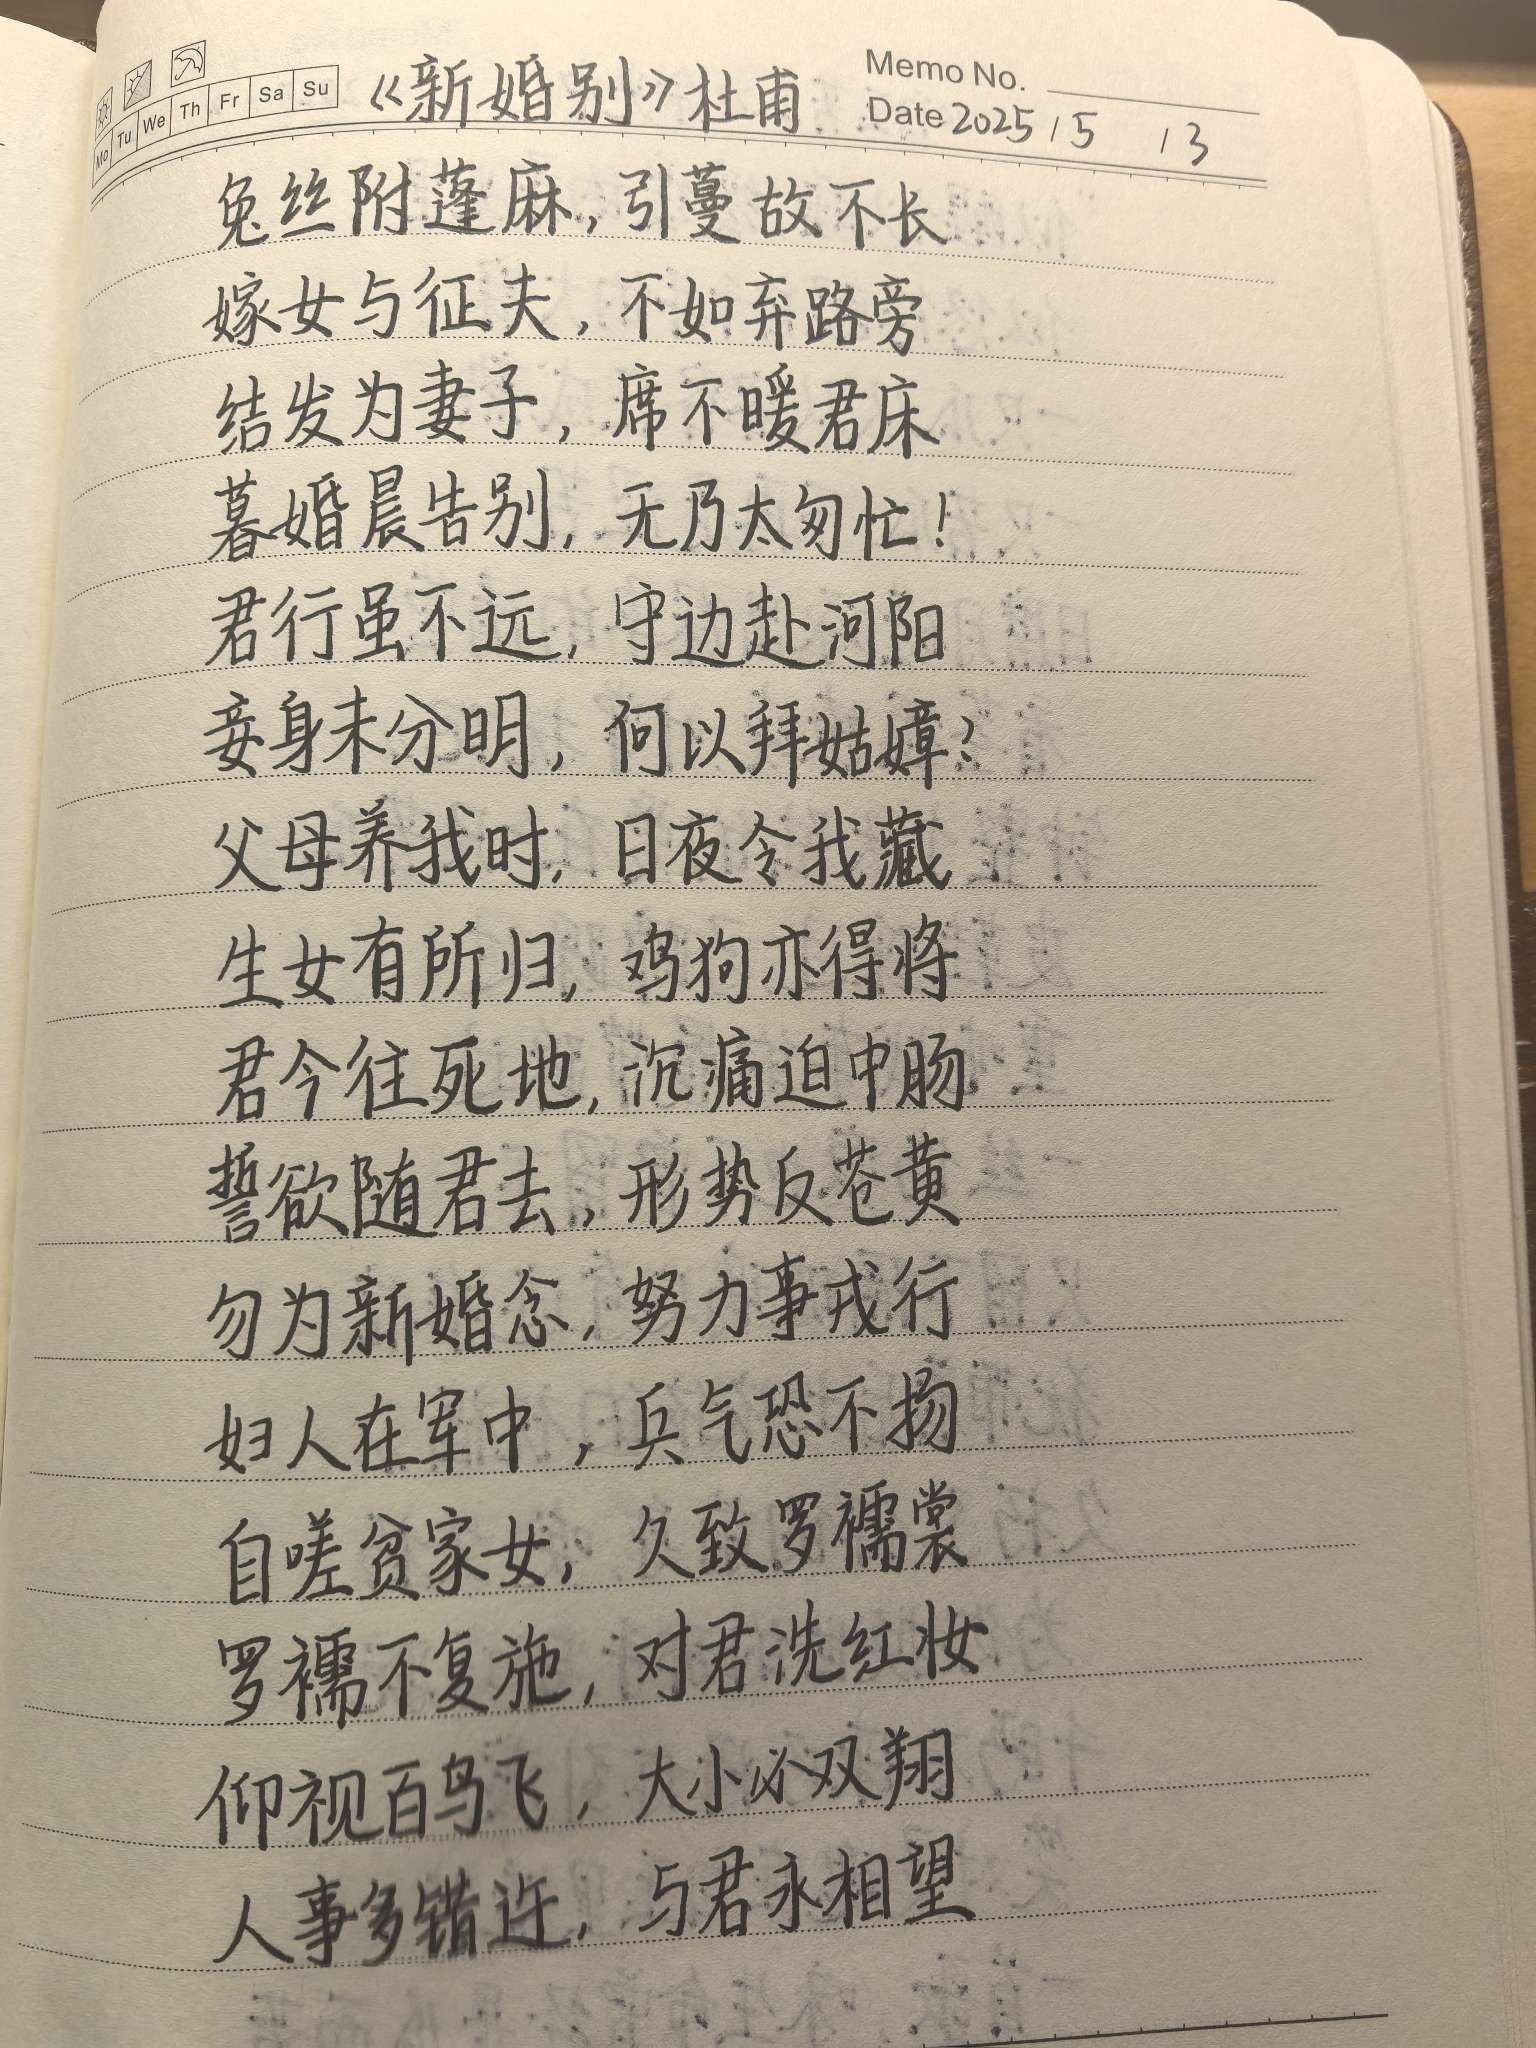 Mo Tu We Th Fr Sa Su
《新婚别》杜甫
Memo No.
Date 2025 / 5 / 3
兔丝附蓬麻,引蔓故不长
嫁女与征夫,不如弃路旁
结发为妻子,席不暖君床
暮婚晨告别,无乃太匆忙!
君行虽不远,守边赴河阳
妾身未分明,何以拜姑嫜?
父母养我时,日夜令我藏
生女有所归,鸡狗亦得将
君今往死地,沉痛迫中肠
誓欲随君去,形势反苍黄
勿为新婚念,努力事戎行
妇人在军中,兵气恐不扬
自嗟贫家女,久致罗襦裳
罗襦不复施,对君洗红妆
仰视百鸟飞,大小必双翔
人事多错迕,与君永相望